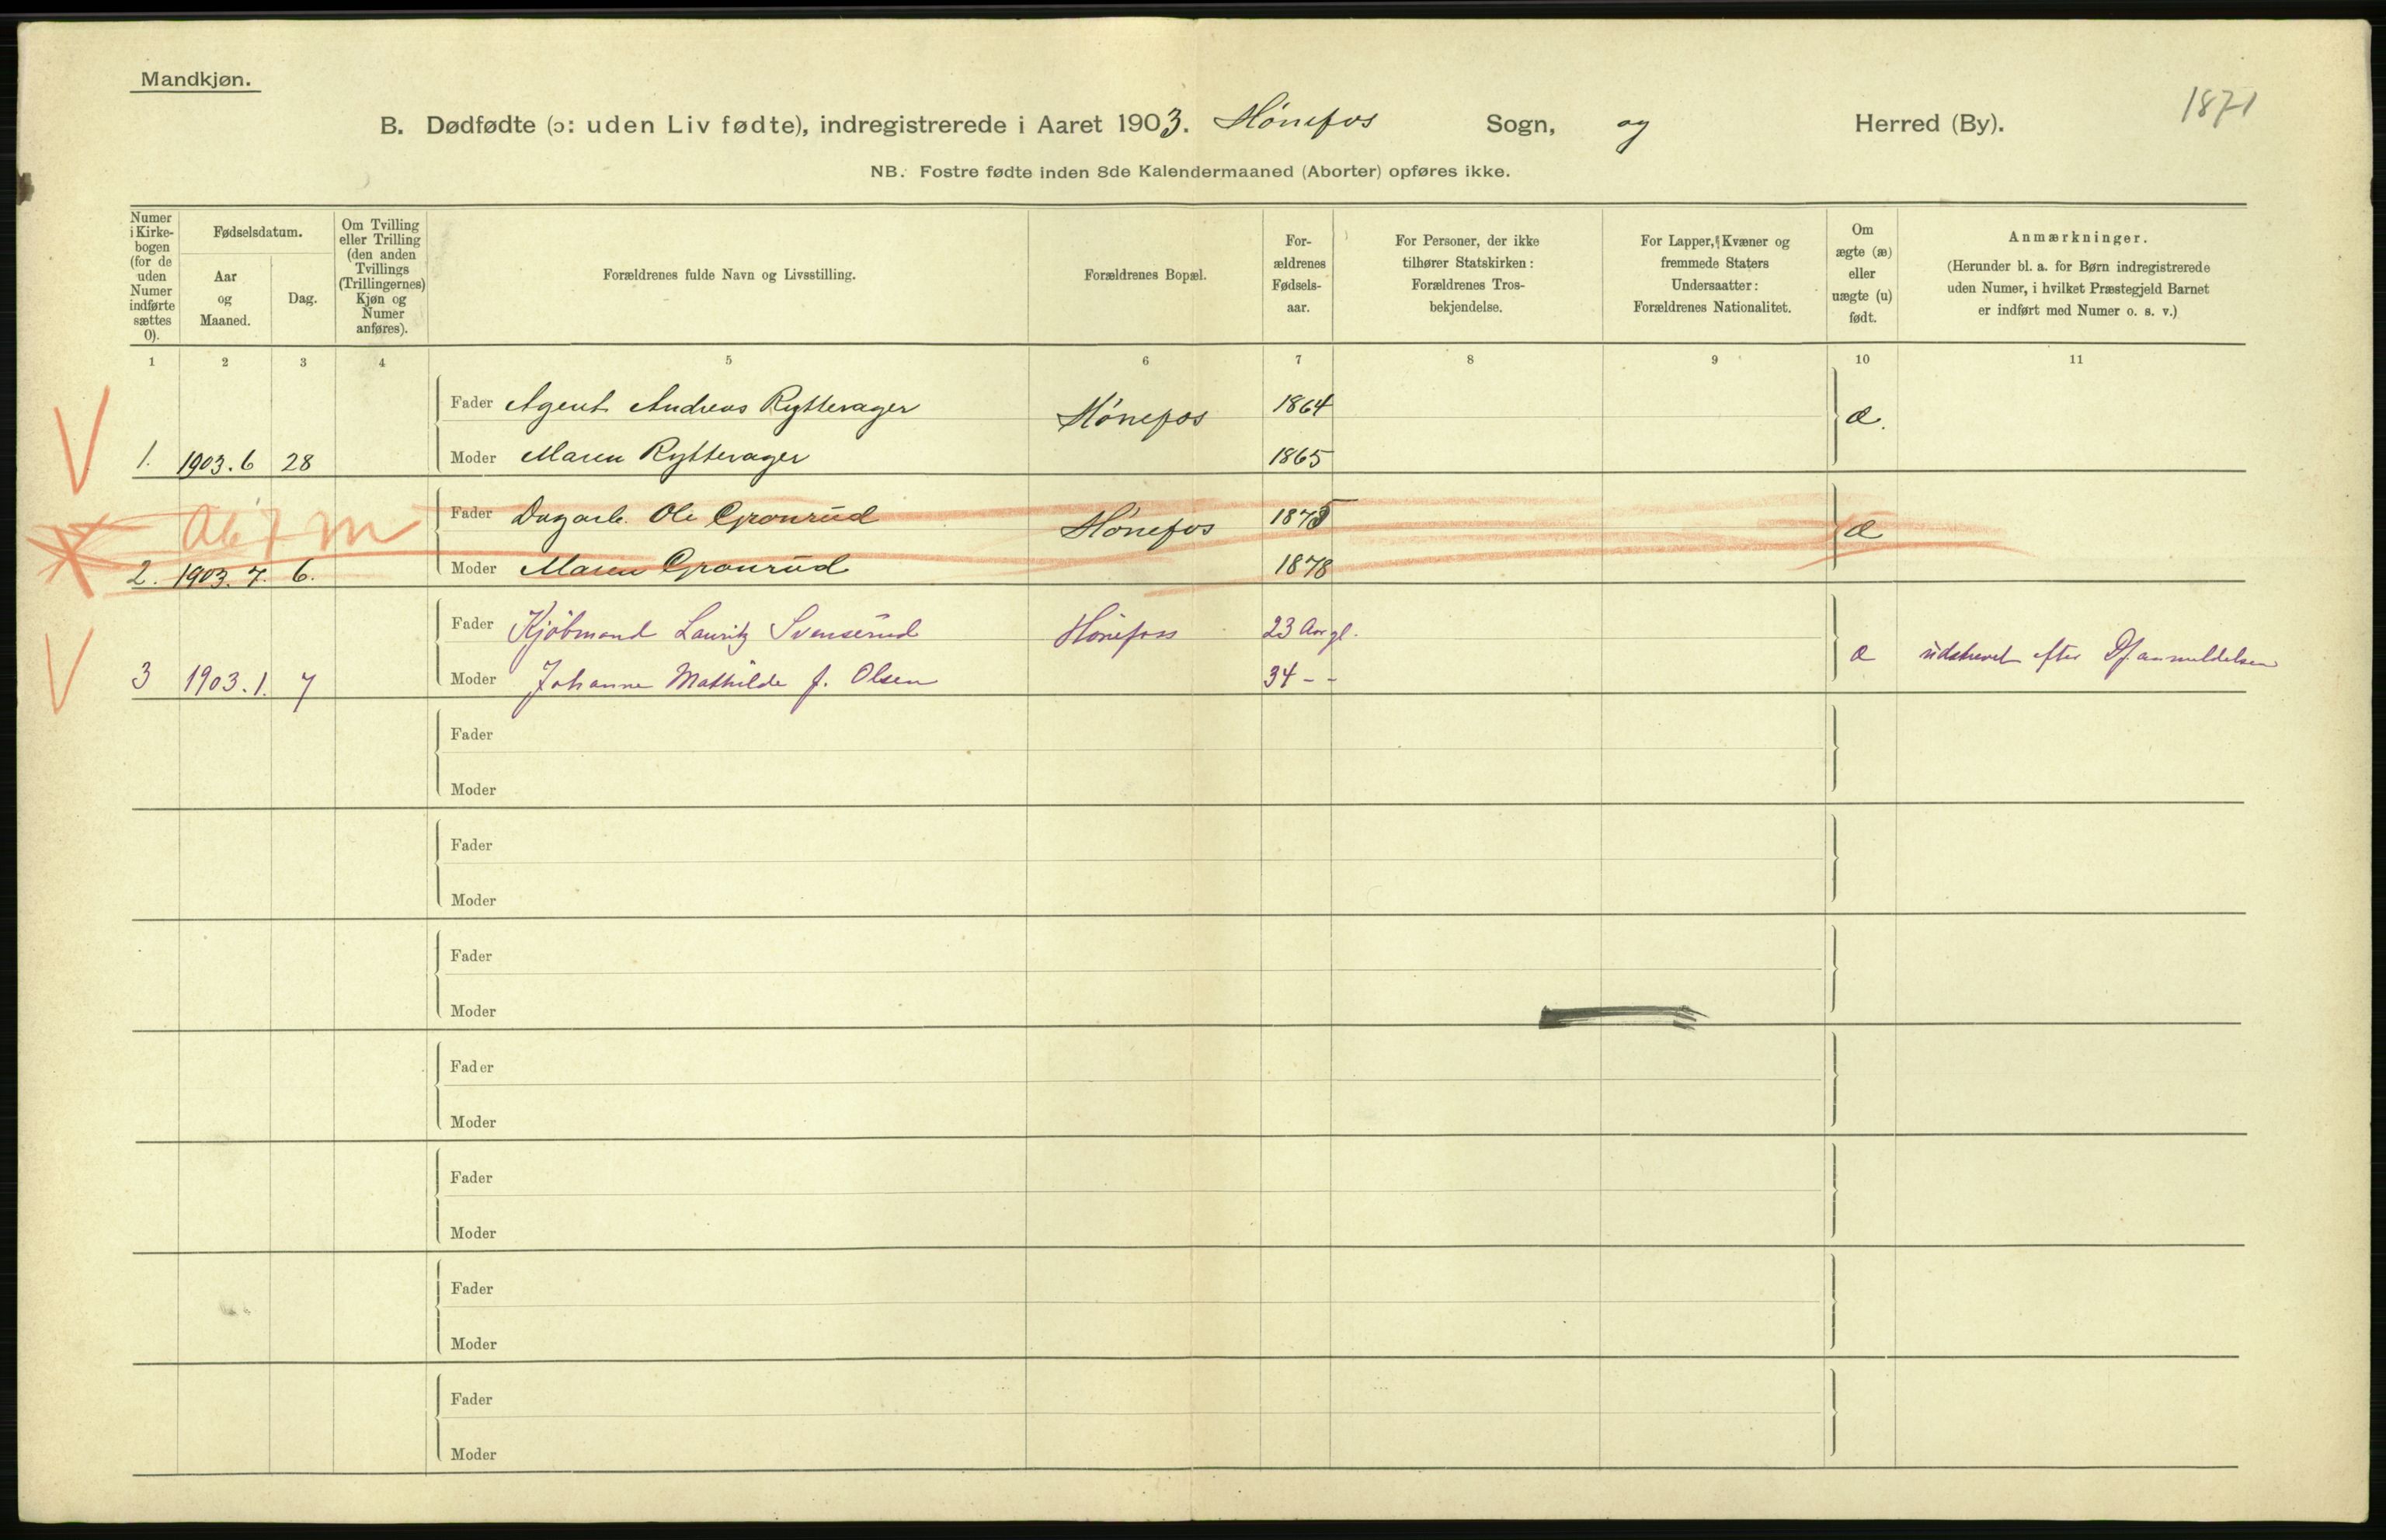 Mandkjøn.
1871
B. Dødfødte (ɔ: uden Liv fødte), indregistrerede i Aaret 1903. Hønefos Sogn, og Herred (By).
NB. Fostre fødte inden 8de Kalendermaaned (Aborter) opføres ikke.
Numer i Kirke-bogen (for de uden Numer indførte sættes 0).
Fødselsdatum.
Aar og Maaned.
Dag.
Om Tvilling eller Trilling (den anden Tvillings (Trillingernes) Kjøn og Numer anføres).
Forældrenes fulde Navn og Livsstilling.
Forældrenes Bopæl.
For-ældrenes Fødsels-aar.
For Personer, der ikke tilhører Statskirken: Forældrenes Tros-bekjendelse.
For Lapper, Kvæner og fremmede Staters Undersaatter: Forældrenes Nationalitet.
Om ægte (æ) eller uægte (u) født.
Anmærkninger.
(Herunder bl. a. for Børn indregistrerede uden Numer, i hvilket Præstegjeld Barnet er indført med Numer o. s. v.)
1 2 3 4 5 6 7 8 9 10 11
Fader Agent Andreas Ryttervager Hønefos 1864 æ.
1. 1903. 6 28 Moder Maren Ryttervager 1865
Fader Dagarb. Ole Grønrud Hønefos 1875 æ
2. 1903. 7. 6. Moder Maren Grønrud 1878
Fader Kjøbmand Lauritz Svenserud Hønefoss 23 Aar gl.
æ udskrevet efter Df. anmeldelsen
3 1903. 1. 7 Moder Johanne Mathilde f. Olsen 34 - -
Fader
Moder
Fader
Moder
Fader
Moder
Fader
Moder
Fader
Moder
Fader
Moder
Fader
Moder